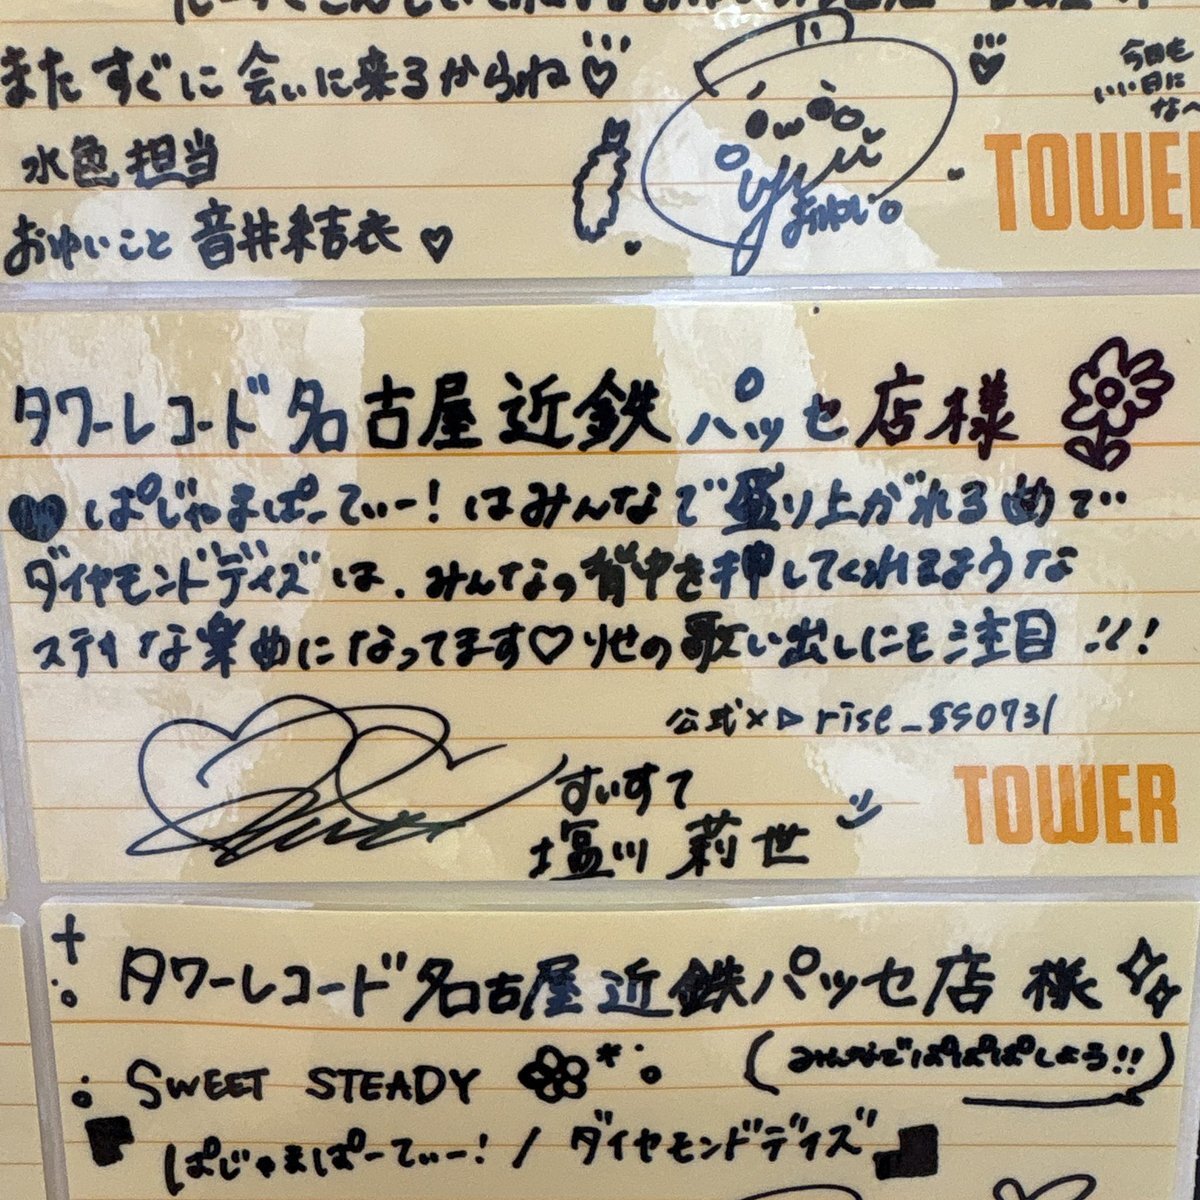 また すぐに 会いに来るからね♡
今日も
いい日に
な〜
水色担当
おゆいこと 音井結衣 ♡
yui
おゆい。
TOWE
タワーレコード名古屋近鉄パッセ店様
♥ ぱじゃまぱーてぃー！はみんなで盛り上がれる曲で
ダイヤモンドデイズは、みんなの背中を押してくれるような
ステキな楽曲になってます♡りせの歌い出しにも注目！！！
公式X▷rise_SS0731
すいすて
塩川莉世
TOWER
タワーレコード名古屋近鉄パッセ店 様
SWEET STEADY
(みんなでぱぱぱぱしよう!!)
ぱじゃまぱーてぃー！/ ダイヤモンドデイズ